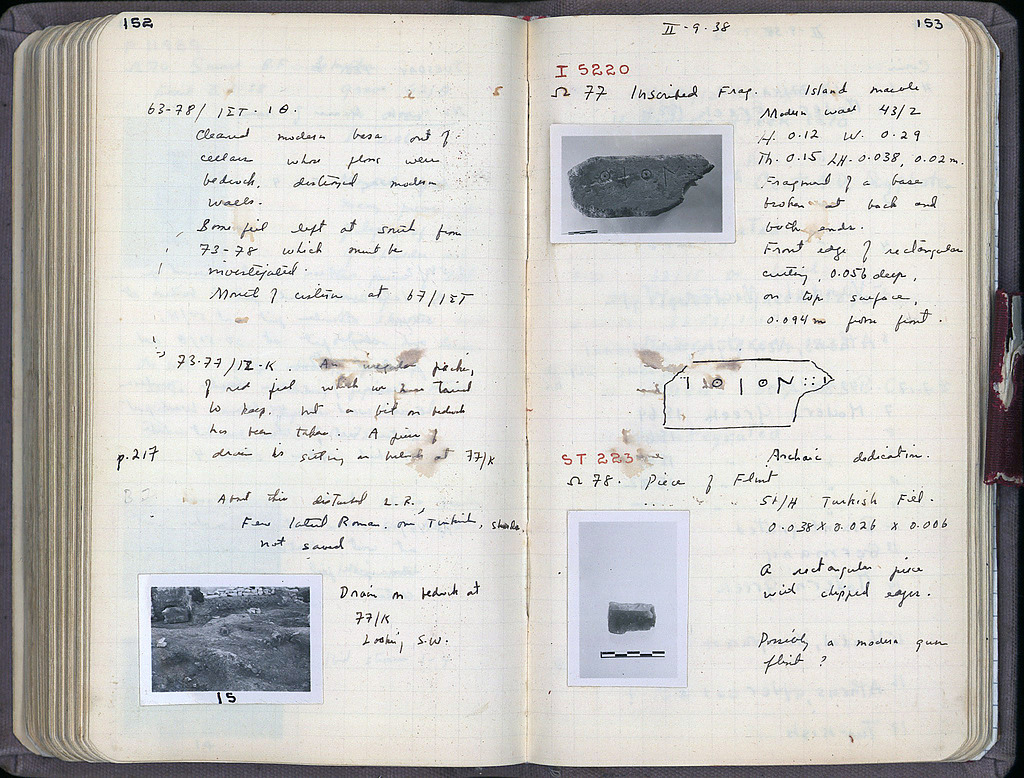 152
63-78/ ΙΣΤ-ΙΘ.
Cleared modern base out of
cellars whose floors were
bedrock. destroyed modern
walls.
Some fill left at south from
73-78 which must be
investigated.
Mouth of cistern at 67/ΙΣΤ
73-77/ΙΖ-Κ. An irregular packing
of red fill which we
to keep. but a bit on bedrock
has been taken. A piece of
p.217 drain is sitting on bedrock at 77/Κ
About this disturbed L.R.,
Few lated Roman. one Turkish, sherds
not saved
Drain on bedrock at
77/Κ
Looking S.W.
15
II-9-38
153
I 5220
Ω 77 Inscribed Frag. Island marble
Modern wall 43/Ζ
H. 0.12 W. 0.29
Th. 0.15 LH. 0.038, 0.02m.
Fragment of a base
broken at back and
both ends.
Front edge of rectangular
cutting 0.056 deep,
on top surface,
0.094m from front.
Ι Ο Ι Ο Ν :: Ι
Archaic dedication.
ST 223
Ω 78. Piece of Flint
51/Η Turkish Fill.
0.038 X 0.026 X 0.006
A rectangular piece
with chipped edges.
Possibly a modern gun
flint?